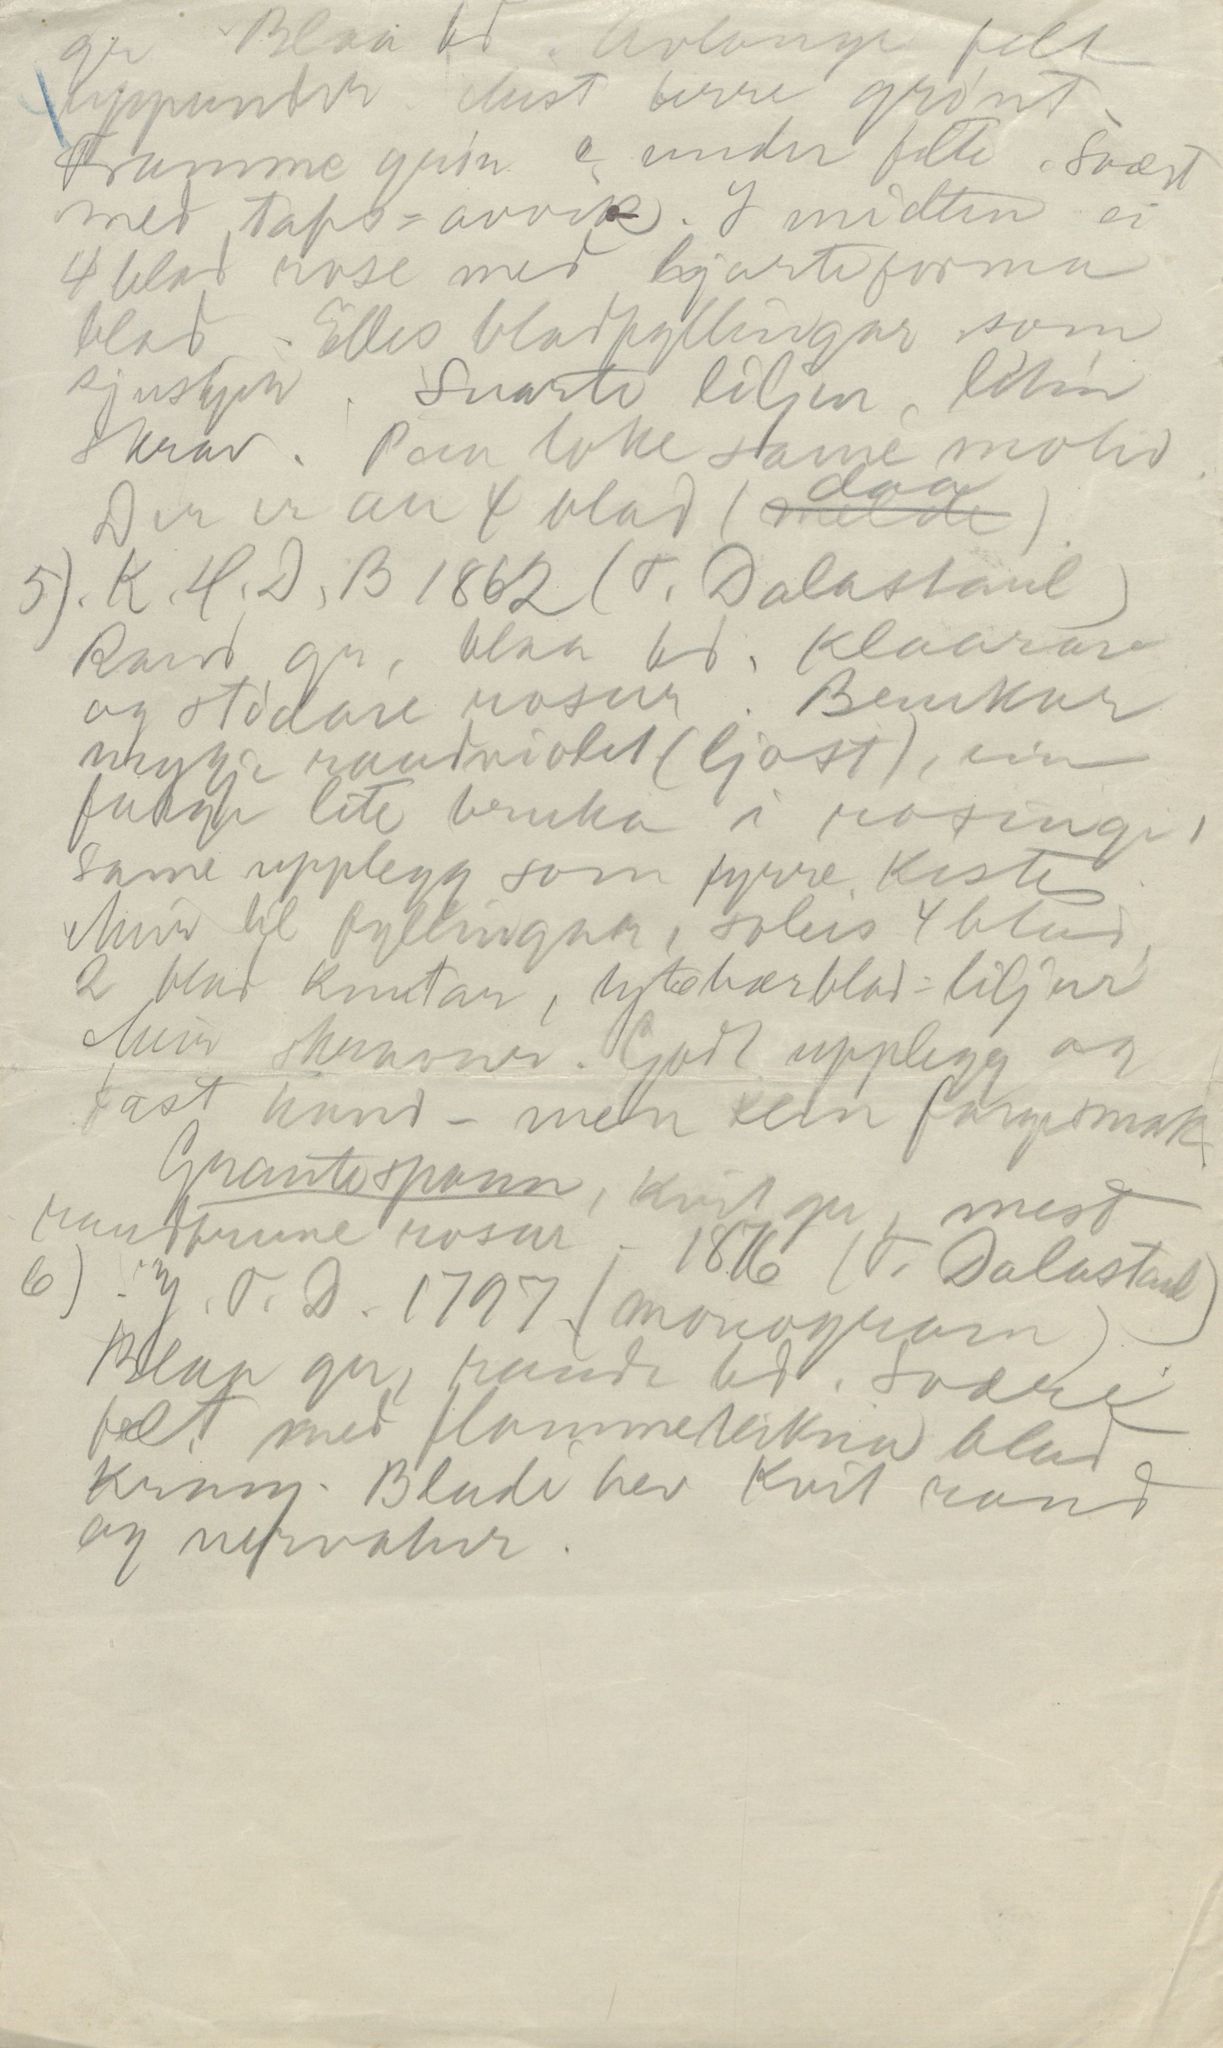 gr Blaa bd. Avlange felt
uppunder. Mest berre grönt.
Framme grön & under felte. Svært
med taps = avvik. I midten ei
4 blad rose med hjarteforma
blad. Elles bladfyllingar som
Svarte liljer, liten
skrav. Paa loke same motiv.
Der er au 4 blad (daa
5). K. H. D. B 1862 (T. Dalastaul)
Raud gr, blaa bd. Klaarare
og stödare rosur. Brukar
mykje raudviolet (ljost), ein
farge lite bruka i rosingi,
same upplegg som fyrre kiste
Meir til fyllingar, soleis 4 blad,
2 blad knutar, tytebærblad = liljur
Meir skravur. Godt upplegg og
fast hand - men klein fargesmak
Grautespann, kvit gr, mest
raudbrune rosur - 1876 (T. Dalastaul)
6). Y. T. D. 1797. (monogram)
Blaa gr, raude bd. Svære
felt med flammeteikna blad
Krans. Bladi hev kvit rand
og nervatur.